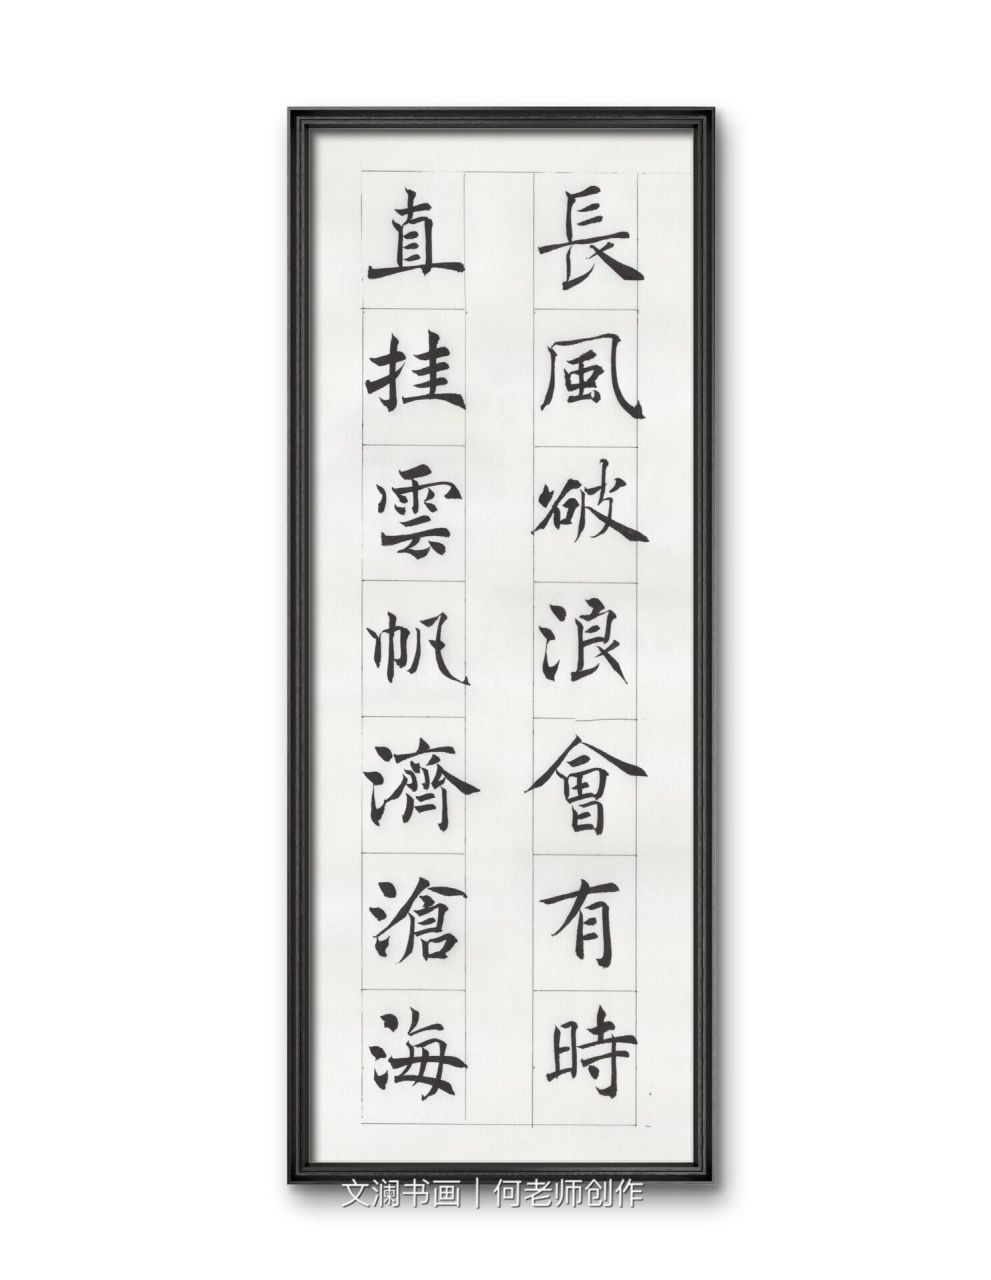 長風破浪會有時
直挂雲帆濟滄海
文澜书画｜何老师创作